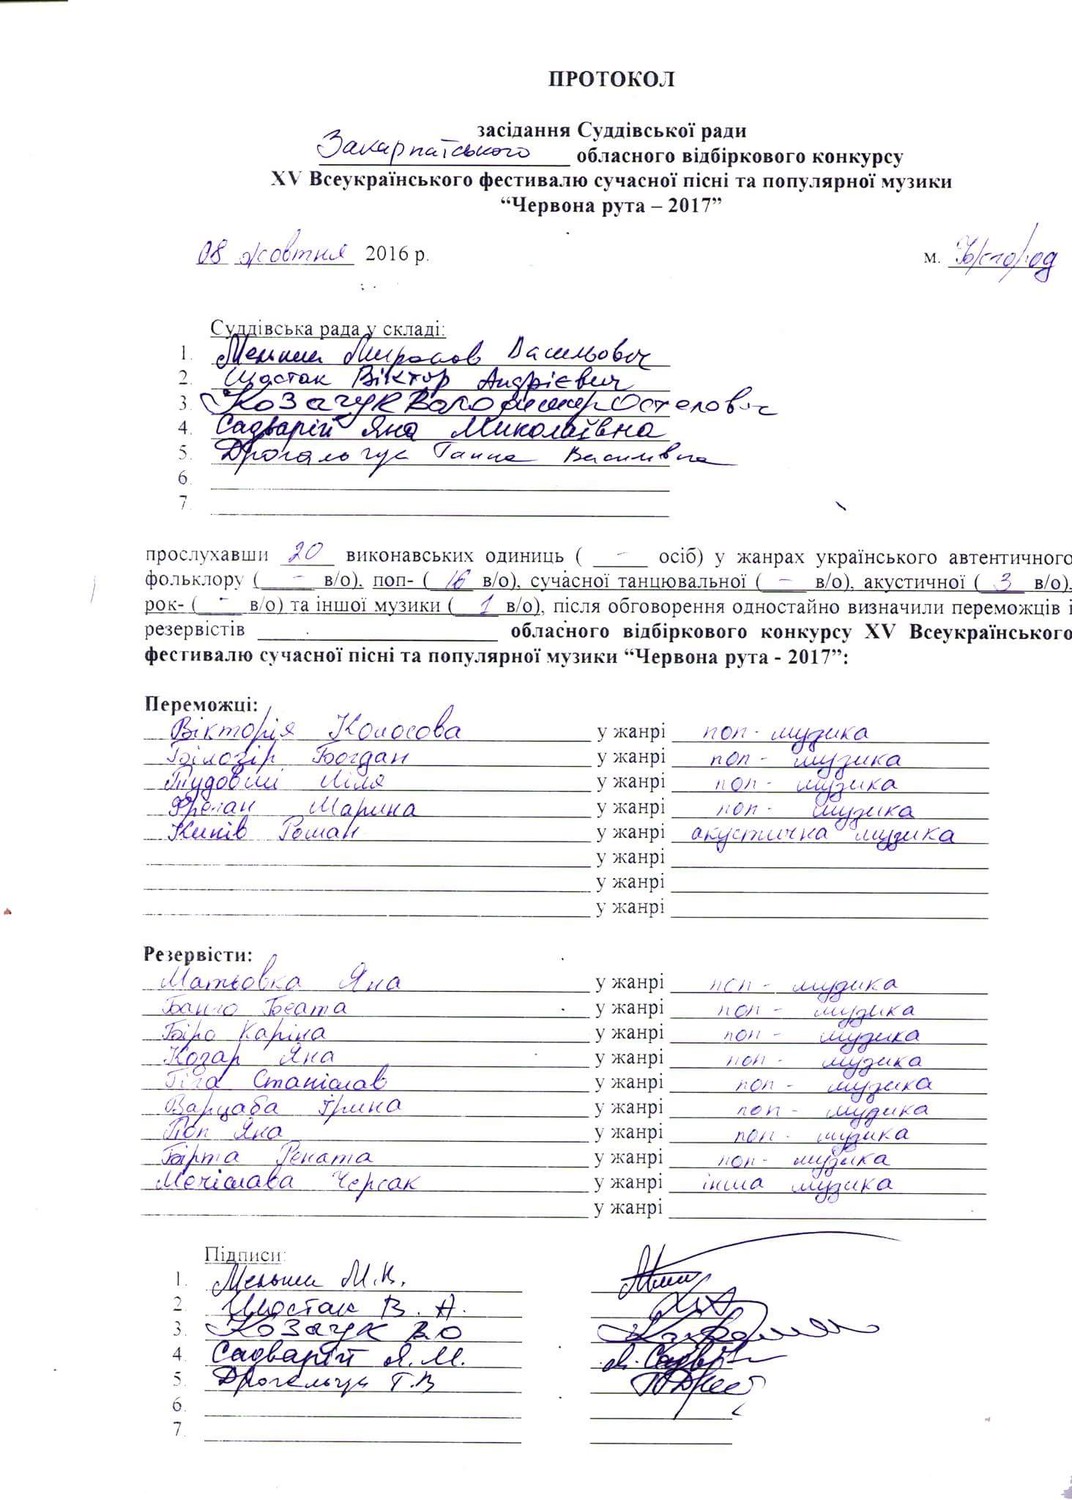 ПРОТОКОЛ
засідання Суддівської ради
Закарпатського обласного відбіркового конкурсу
XV Всеукраїнського фестивалю сучасної пісні та популярної музики
“Червона рута – 2017”
08 жовтня 2016 р. м. Ужгород
Суддівська рада у складі:
1. Меньшик Миронов Васильович
2. Шостак Віктор Андрієвич
3. Козачук Володимир Остапович
4. Садварій Яна Миколаївна
5. Дрогальчук Ганна Василівна
6.
7.
прослухавши 20 виконавських одиниць ( - осіб) у жанрах українського автентичного
фольклору ( - в/о), поп- ( 16 в/о), сучасної танцювальної ( - в/о), акустичної ( 3 в/о),
рок- ( - в/о) та іншої музики ( 1 в/о), після обговорення одностайно визначили переможців і
резервістів обласного відбіркового конкурсу XV Всеукраїнського
фестивалю сучасної пісні та популярної музики “Червона рута - 2017”:
Переможці:
Вікторія Колосова у жанрі поп-музика
Білозір Богдан у жанрі поп - музика
Ліля у жанрі поп - музика
Марина у жанрі поп - музика
Роман у жанрі акустична музика
у жанрі
у жанрі
у жанрі
Резервісти:
Матьовка Яна у жанрі поп - музика
Беата у жанрі поп - музика
Біро Каріна у жанрі поп - музика
Козар Яна у жанрі поп - музика
Станіслав у жанрі поп - музика
Варцаба Ірина у жанрі поп - музика
Поп Яна у жанрі поп - музика
Бірта Рената у жанрі поп - музика
Мечіслава Черсак у жанрі інша музика
у жанрі
Підписи:
1.
2. Шостак В. А.
3. Козачук ВО
4. Садварій Я.М. Я. Садварій
5. Дрогальчук Г.В
6.
7.